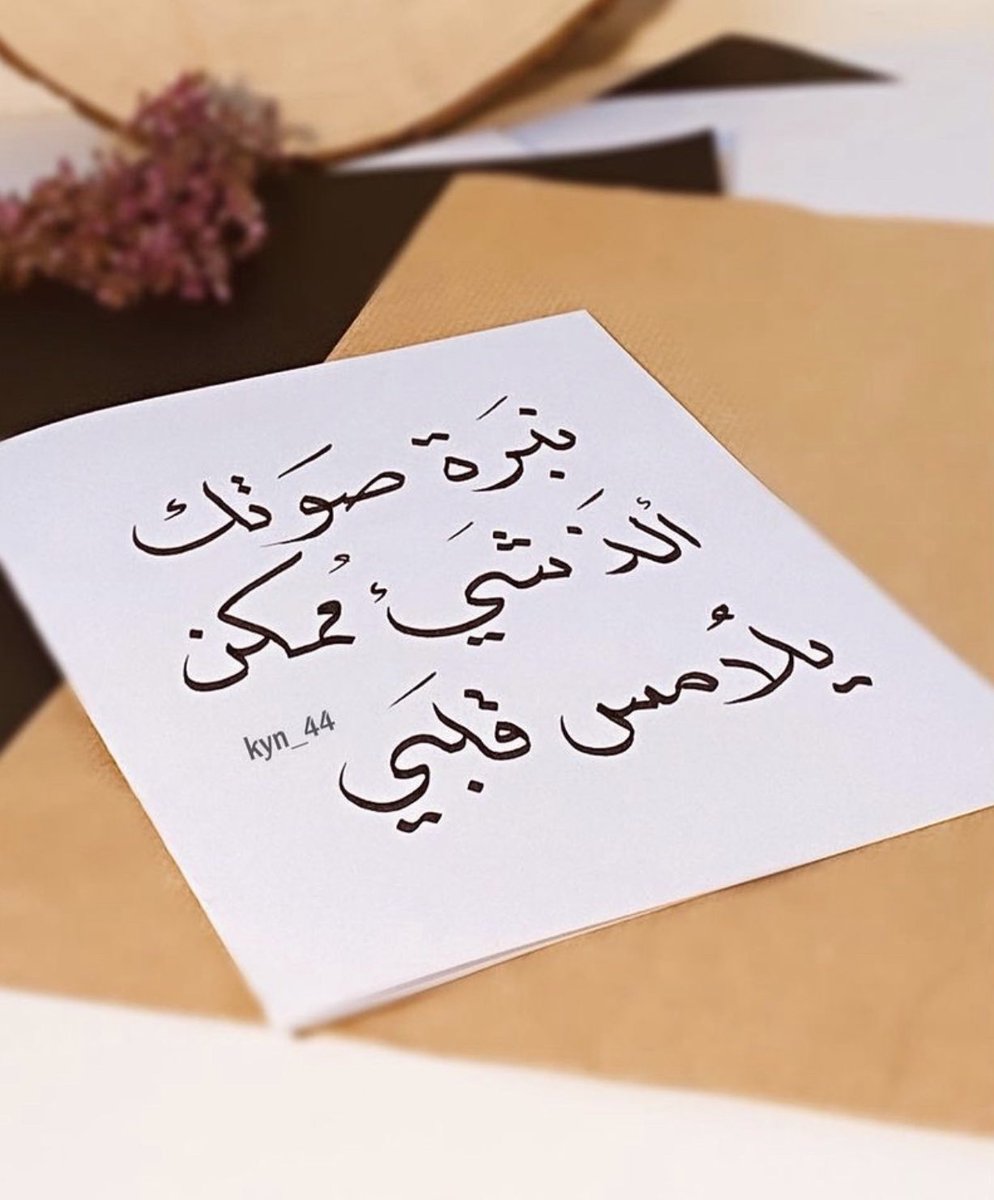 نبَرة صوَتك
ألذَ شيَئ مُمكن
يلاُمس قلبَي
kyn_44